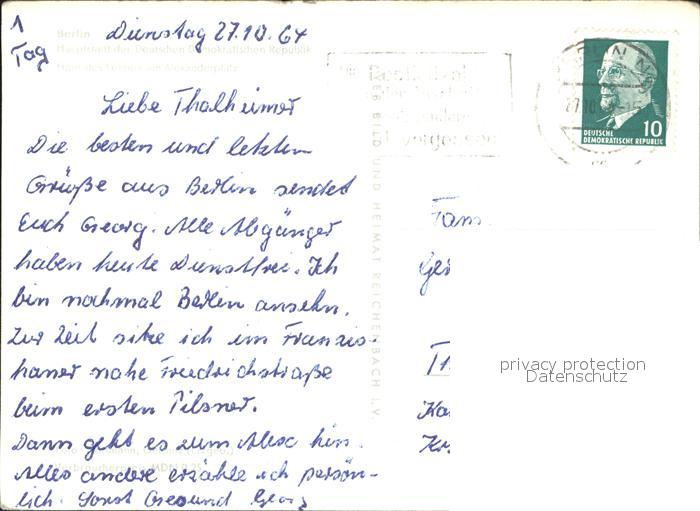 1
Tag
Dienstag 27.10.64
Berlin
Hauptstadt der Deutschen Demokratischen Republik
Liebe Thalheimer
Die besten und letzten
Grüße aus Berlin sendet
Euch Georg. Alle Abgänger
haben heute Dienstfrei. Ich
bin nochmal Berlin ansehn.
Zur Zeit sitze ich im Franzis-
kaner nahe Friedrichstraße
beim ersten Pilsner.
Dann geht es zum Alex hin.
Alles andere erzähle ich persön-
lich. Sonst Gesund Georg
BILD UND HEIMAT REICHENBACH I. V.
10
DEUTSCHE
DEMOKRATISCHE REPUBLIK
Fam
privacy protection
Datenschutz